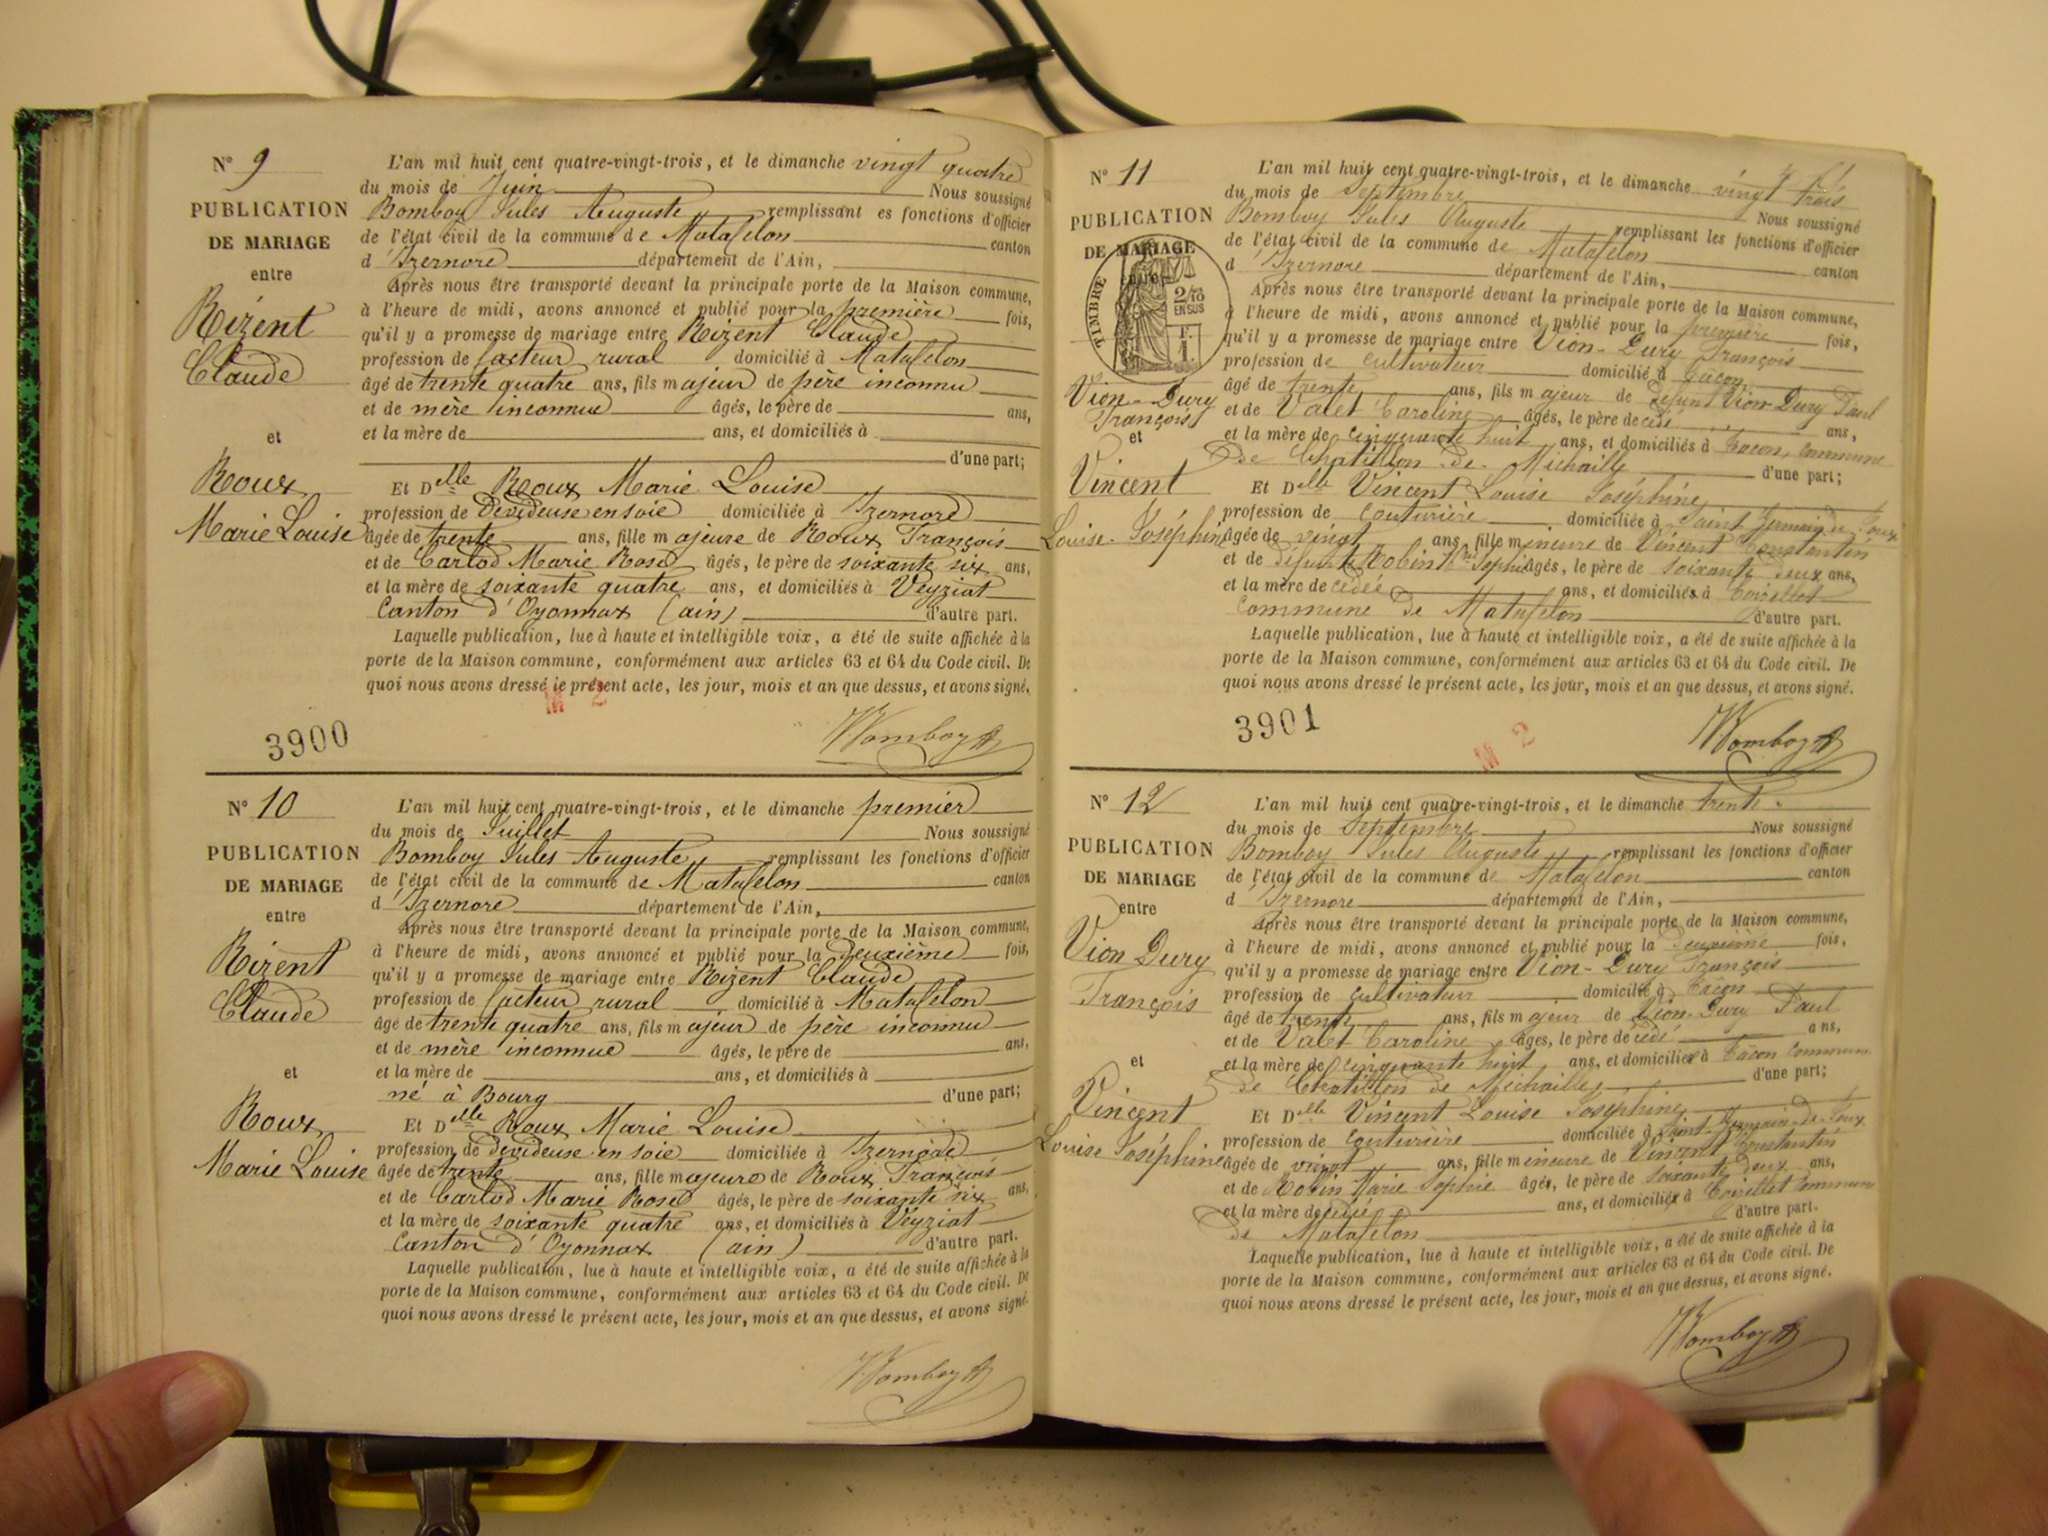 N° 9
PUBLICATION
DE MARIAGE
entre
Rizent
Claude
et
Roux
Marie Louise
L'an mil huit cent quatre-vingt-trois, et le dimanche vingt quatre
du mois de Juin Nous soussigné
Bomboy Jules Auguste remplissant es fonctions d'officier
de l'état civil de la commune de Matafelon canton
d'Izernore département de l'Ain,
Après nous être transporté devant la principale porte de la Maison commune,
à l'heure de midi, avons annoncé et publié pour la première fois,
qu'il y a promesse de mariage entre Rizent Claude
profession de facteur rural domicilié à Matafelon
âgé de trente quatre ans, fils majeur de père inconnu
et de mère inconnue âgés, le père de ans,
et la mère de ans, et domiciliés à
d'une part;
Et Delle Roux Marie Louise
profession de Dévideuse en soie domiciliée à Izernore
âgée de trente ans, fille majeure de Roux François
et de Carlod Marie Rose âgés, le père de soixante six ans,
et la mère de soixante quatre ans, et domiciliés à Veyziat
Canton d'Oyonnax (ain) d'autre part.
Laquelle publication, lue à haute et intelligible voix, a été de suite affichée à la
porte de la Maison commune, conformément aux articles 63 et 64 du Code civil. De
quoi nous avons dressé le présent acte, les jour, mois et an que dessus, et avons signé.
M 2
3900
Bomboy
N° 10
PUBLICATION
DE MARIAGE
entre
Rizent
Claude
et
Roux
Marie Louise
L'an mil huit cent quatre-vingt-trois, et le dimanche premier
du mois de Juillet Nous soussigné
Bomboy Jules Auguste remplissant les fonctions d'officier
de l'état civil de la commune de Matafelon canton
d'Izernore département de l'Ain,
Après nous être transporté devant la principale porte de la Maison commune,
à l'heure de midi, avons annoncé et publié pour la deuxième fois,
qu'il y a promesse de mariage entre Rizent Claude
profession de facteur rural domicilié à Matafelon
âgé de trente quatre ans, fils majeur de père inconnu
et de mère inconnue âgés, le père de ans,
et la mère de ans, et domiciliés à
né à Bourg d'une part;
Et Delle Roux Marie Louise
profession de dévideuse en soie domiciliée à
âgée de trente ans, fille majeure de Roux François
et de Carlod Marie Rose âgés, le père de soixante six ans,
et la mère de soixante quatre ans, et domiciliés à Veyziat
Canton d'Oyonnax (ain) d'autre part.
Laquelle publication, lue à haute et intelligible voix, a été de suite affichée à la
porte de la Maison commune, conformément aux articles 63 et 64 du Code civil. De
quoi nous avons dressé le présent acte, les jour, mois et an que dessus, et avons signé.
Bomboy
N° 11
PUBLICATION
DE MARIAGE
entre
TIMBRE
2/10
EN SUS
F. 1.
Vion-Dury
François
et
Vincent
Louise-Joséphine
L'an mil huit cent quatre-vingt-trois, et le dimanche vingt trois
du mois de Septembre Nous soussigné
Bomboy Jules Auguste remplissant les fonctions d'officier
de l'état civil de la commune de Matafelon canton
d'Izernore département de l'Ain,
Après nous être transporté devant la principale porte de la Maison commune,
à l'heure de midi, avons annoncé et publié pour la première fois,
qu'il y a promesse de mariage entre Vion-Dury François
profession de cultivateur domicilié à Tacon
âgé de trente ans, fils majeur de défunt Vion Dury Paul
et de Valet Caroline âgés, le père de cédé ans,
et la mère de cinquante huit ans, et domiciliés à Tacon, commune
de Chatillon de Michaille d'une part;
Et Delle Vincent Louise Joséphine
profession de couturière domiciliée à Saint Germain de Joux
âgée de vingt ans, fille mineure de Vincent Constantin
et de défunte Robin Sophie âgés, le père de soixante deux ans,
et la mère de cédée ans, et domiciliés à Coisellet
commune de Matafelon d'autre part.
Laquelle publication, lue à haute et intelligible voix, a été de suite affichée à la
porte de la Maison commune, conformément aux articles 63 et 64 du Code civil. De
quoi nous avons dressé le présent acte, les jour, mois et an que dessus, et avons signé.
3901
M 2
Bomboy
N° 12
PUBLICATION
DE MARIAGE
entre
Vion Dury
François
et
Vincent
Louise Joséphine
L'an mil huit cent quatre-vingt-trois, et le dimanche trente
du mois de Septembre Nous soussigné
Bomboy Jules Auguste remplissant les fonctions d'officier
de l'état civil de la commune de Matafelon canton
d'Izernore département de l'Ain,
Après nous être transporté devant la principale porte de la Maison commune,
à l'heure de midi, avons annoncé et publié pour la deuxième fois,
qu'il y a promesse de mariage entre Vion-Dury François
profession de cultivateur domicilié à Tacon
âgé de trente ans, fils majeur de Vion Dury Paul
et de Valet Caroline âgés, le père de cédé ans,
et la mère de cinquante huit ans, et domiciliés à Tacon commune
de Chatillon de Michailles d'une part;
Et Delle Vincent Louise Joséphine
profession de couturière domiciliée à Saint-Germain-de-Joux
âgée de vingt ans, fille mineure de Vincent Constantin
et de Robin Marie Sophie âgés, le père de soixante deux ans,
et la mère de cédée ans, et domiciliés à Coisellet commune
de Matafelon d'autre part.
Laquelle publication, lue à haute et intelligible voix, a été de suite affichée à la
porte de la Maison commune, conformément aux articles 63 et 64 du Code civil. De
quoi nous avons dressé le présent acte, les jour, mois et an que dessus, et avons signé.
Bomboy